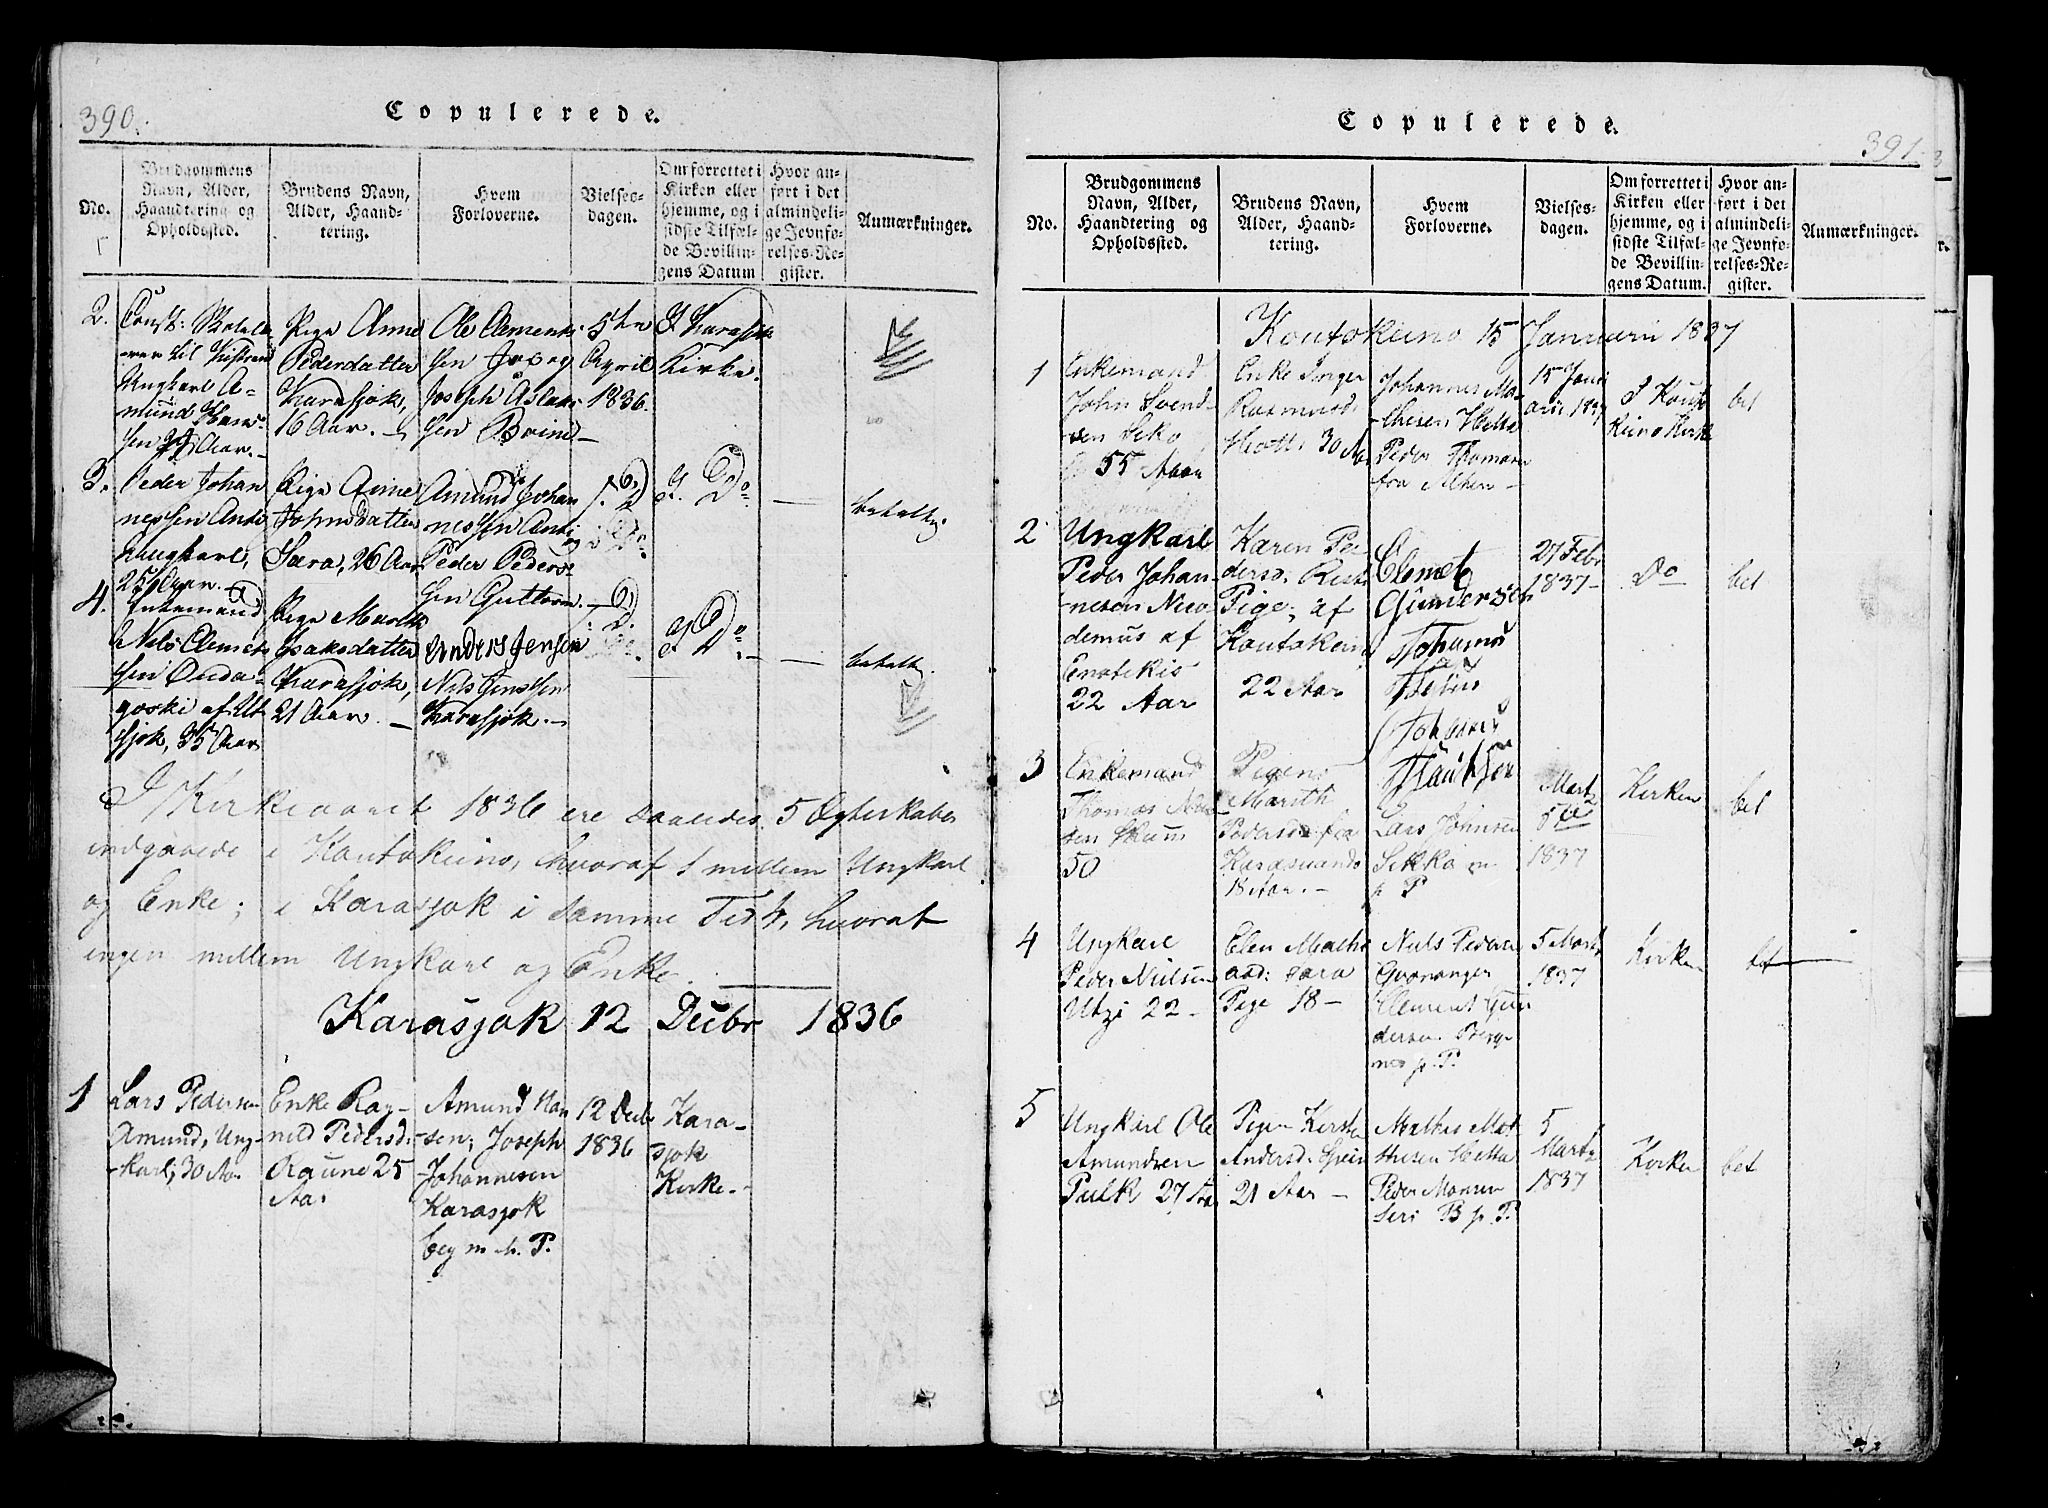 390.
Copulerede.
No.
Brudgommens
Navn, Alder,
Haandtering og
Opholdssted.
Brudens Navn,
Alder, Haand-
tering.
Hvem
Forloverne.
Vielses-
dagen.
Om forrettet i
Kirken eller
hjemme, og i
sidste Tilfæl-
de Bevillin-
gens Datum
Hvor an-
ført i det
almindeli-
ge Jevnfø-
relses-Re-
gister.
Anmærkninger.
2.
mund
sen Aar.
Pige Anne
Pedersdatter
Karasjok,
16 Aar.
Ole Clements
sen
Joseph Aslak
sen
5te
April
1836.
I Karasjok
Kirke.
3.
Peder Johan
nessen
Ungkarl,
25 Aar.
Pige Anne
Johnsdatter
Sara, 26 Aar
Amund Johan
nessen
Peder Peders
sen Guttorm.
I Do
betalt
4.
Enkemand
Niels Clemet
sen
af Ut
sjok, 35 Aar
Pige Marith
Isaksdatter
Karasjok,
21 Aar.
Anders Jensen
Nils Jenssen
Karasjok.
I Do
betalt
I Kirkeaaret 1836 ere saaledes 5 Ægteskaber
indgaaede i Koutokeino, hvoraf 1 mellem Ungkarl
og Enke; i Karasjok i samme Tid 4, hvoraf
ingen mellem Ungkarl og Enke.
Karasjok 12 Decbr 1836
1
Lars Pedersen
Amund, Ung-
karl, 30 Aa.
Enke Rag-
nild Pedersd.
Raune 25
Aar
Amund Han
sen; Joseph
Johannesen
Karasjok
beg m. h. P.
12 Decbr
1836
Kara-
sjok
Kirke.
Copulerede.
391
No.
Brudgommens
Navn, Alder,
Haandtering og
Opholdssted.
Brudens Navn,
Alder, Haand-
tering.
Hvem
Forloverne.
Vielses-
dagen.
Om forrettet i
Kirken eller
hjemme, og i
sidste Tilfæl-
de Bevillin-
gens Datum.
Hvor an-
ført i det
almindeli-
ge Jevnfø-
relses-Re-
gister.
Anmærkninger.
Koutokeino 15 Januarii 1837
1
Enkemand
John Svend-
sen
55 Aar
Enke Inger
Rasmusd.
30 Aar
Johannes Ma-
thesen Hetta
Peder Thomasen
fra Alten
15 Janu
arii 1837
I Kouto
Keino Kirke
bet
2
Ungkarl
Peder Johan-
nesen Nico
demus af
Enotekis
22 Aar
Karen Pe
dersd.
Pige, af
Koutokeino
22 Aar
Clemet
Gundersen
Johannes
27 Febr
1837
Do
bet
3
Enkemand
Thomas
sen
50
Pigen
Marith
Pedersd. fra
Karasuando
18 Aar.
Lars Johnsen
m
p P
Martz
5te
1837
Kirken
bet
4
Ungkarl
Peder Nielsen
Utzi 22
Elen Mathe
asd: Sara
Pige 18
Niels Pedersen
Clement Gun
dersen
p. P.
5 Martz
1837
Kirken
bet
5
Ungkarl Ole
Amundsen
Pulk 27 Aar
Pigen Kersten
Andersd. Spein
21 Aar
Mathis Mat
thesen Hetta
Peder Monsen
Seri B p. P.
5
Martz
1837
Kirken
bet